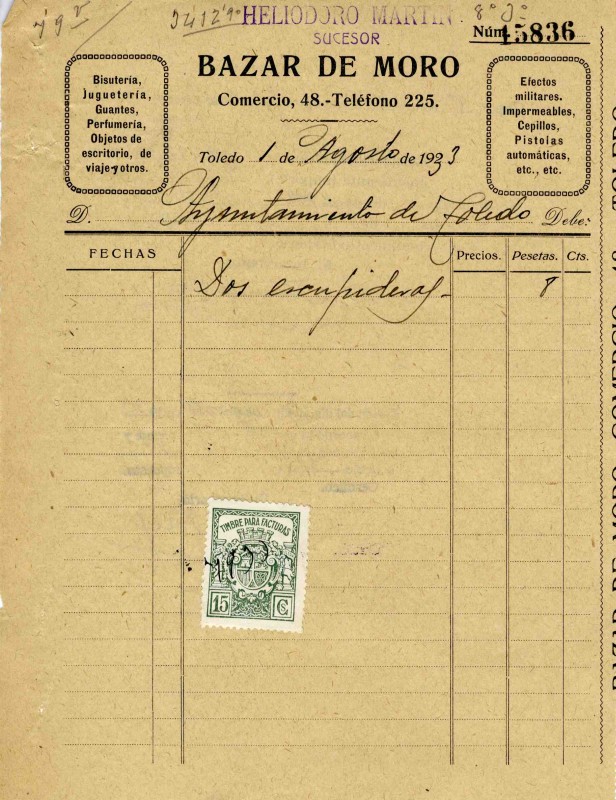 HELIODORO MARTIN
SUCESOR
8º 3º
Núm. 15836
BAZAR DE MORO
Comercio, 48.-Teléfono 225.
Bisutería,
Juguetería,
Guantes,
Perfumería,
Objetos de
escritorio, de
viaje y otros.
Efectos
militares.
Impermeables,
Cepillos,
Pistolas
automáticas,
etc., etc.
Toledo 1 de Agosto de 1933
D. Ayuntamiento de Toledo Debe:
FECHAS Precios. Pesetas. Cts.
Dos escupideras 8
TIMBRE PARA FACTURAS
15 CS
BAZAR DE MORO COMERCIO 48 TOLEDO